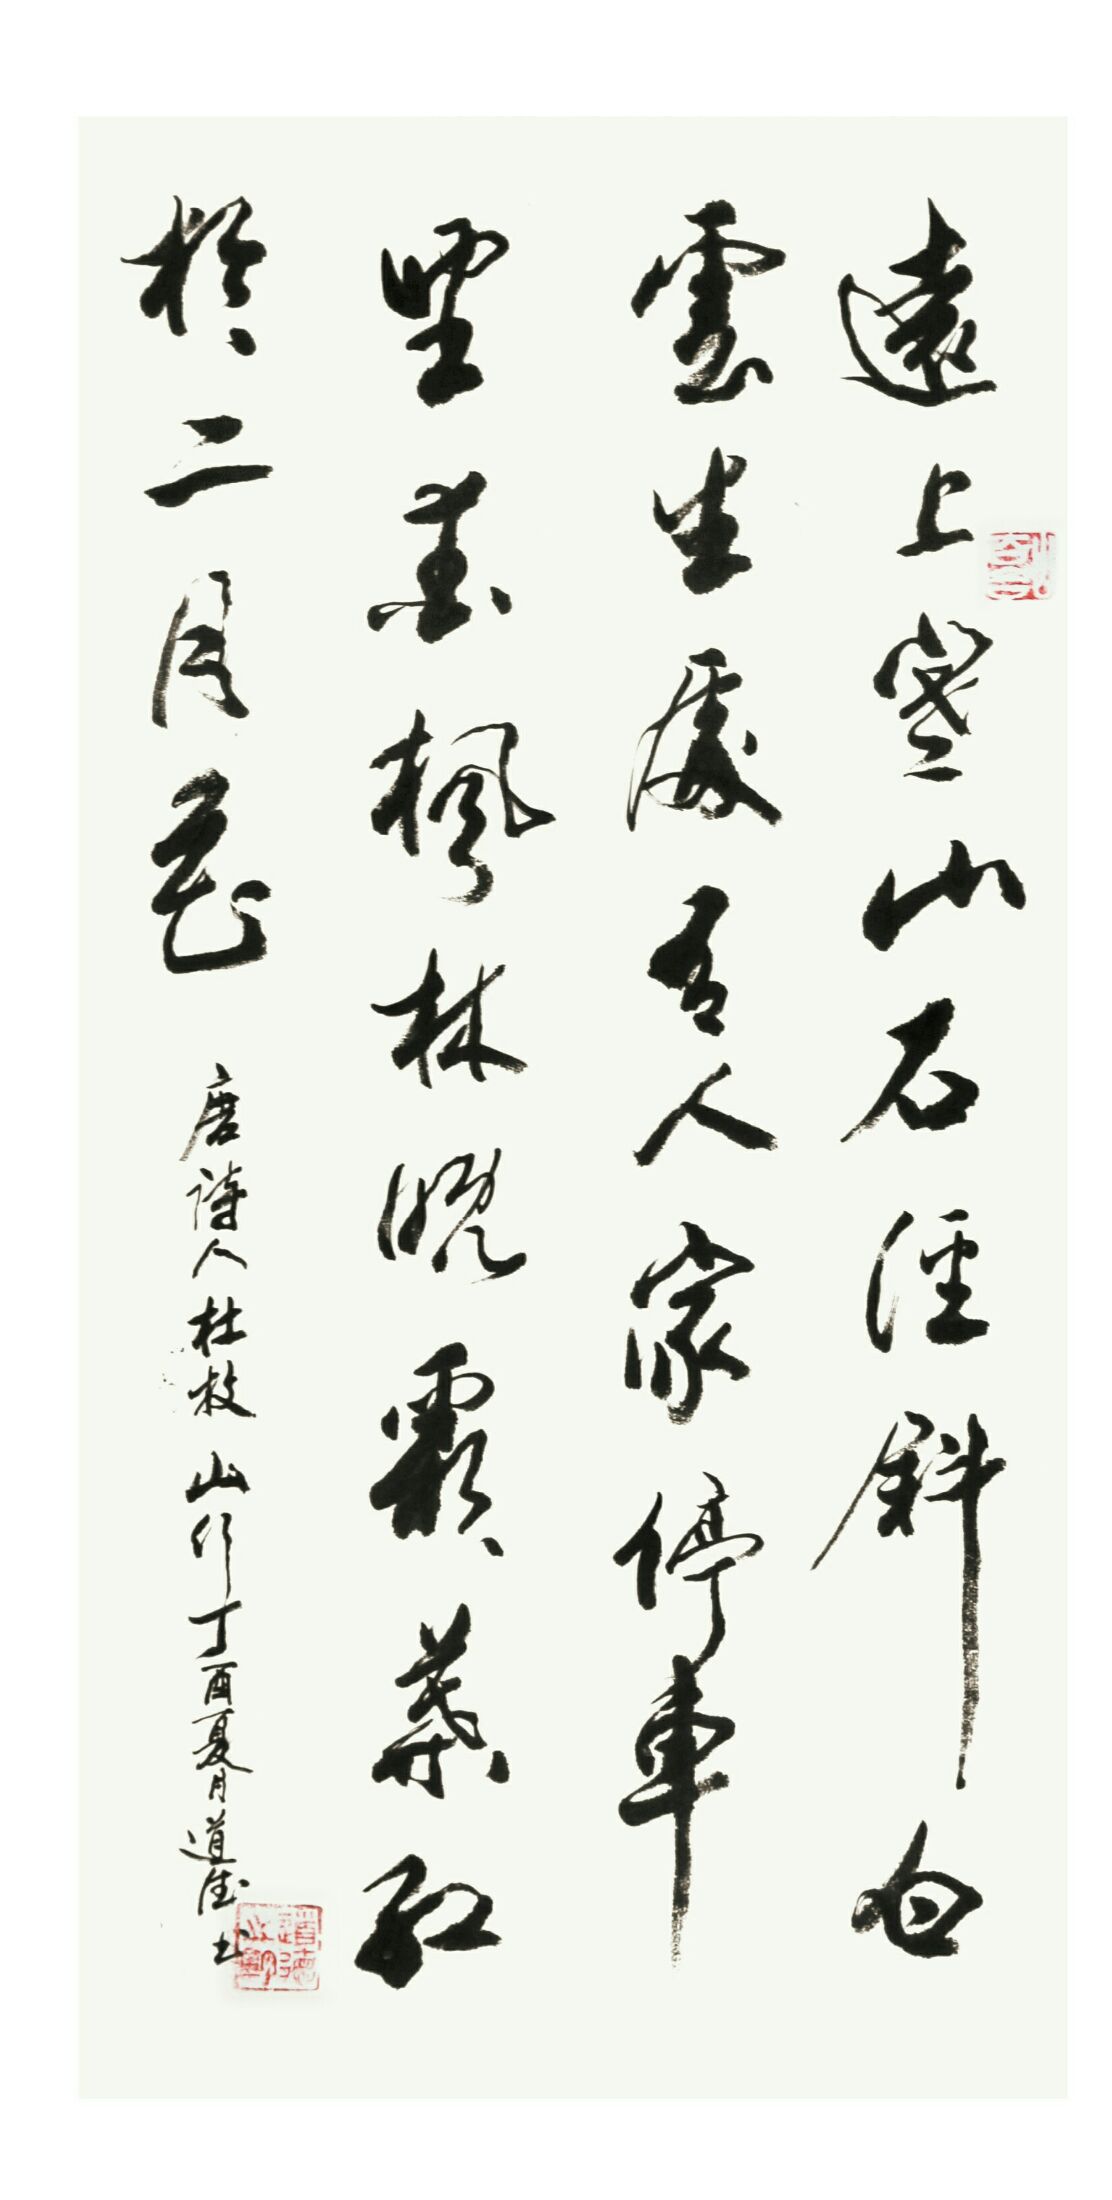 遠上寒山石徑斜白
雲生處有人家停車
坐愛楓林晚霜葉紅
於二月花
唐詩人杜牧山行丁酉夏月道德书